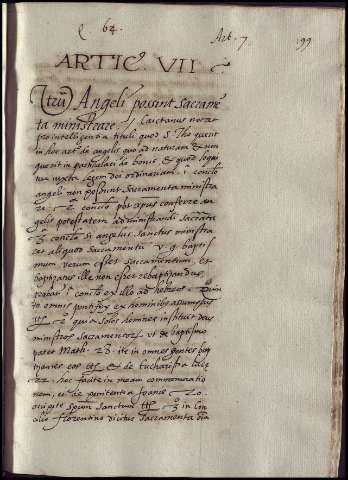 q 64.
Art. 7
199
ARTIC VII
Utrũ Angeli possint sacrame
ta ministrare // Caietanus notat
pro intelligentia tituli quod S Tho querit
in hoc artº de angelis quo ad naturam & non
querit in particulari de bonis & quod loqui
tur iuxta legem dei ordinariam. 1ª conclº
angeli non possunt sacramenta ministra
re. 2ª conclº pöt Xpus conferre an
gelis potestatem administrandi sacramta
3ª conclº si angelus sanctus ministra
ret aliquod sacramentũ v. g. baptis
mum verum esset sacramentum et
baptizatus ille non esset rebaptizandus
conclº ex illo ad hebreos
omnis pontifex ex hominibus assumptus
quia solos homines instituit deus
ministros sacramentorũ et de baptismo
patet Math. 28. ite in omnes gentes bap
tizantes eos et de eucharistia luc
22. hoc facite in meam commemoratio
nem, et de penitentia Joanis 20.
accipite spirm sanctum in con
cilio florentino dicitur sacramenta